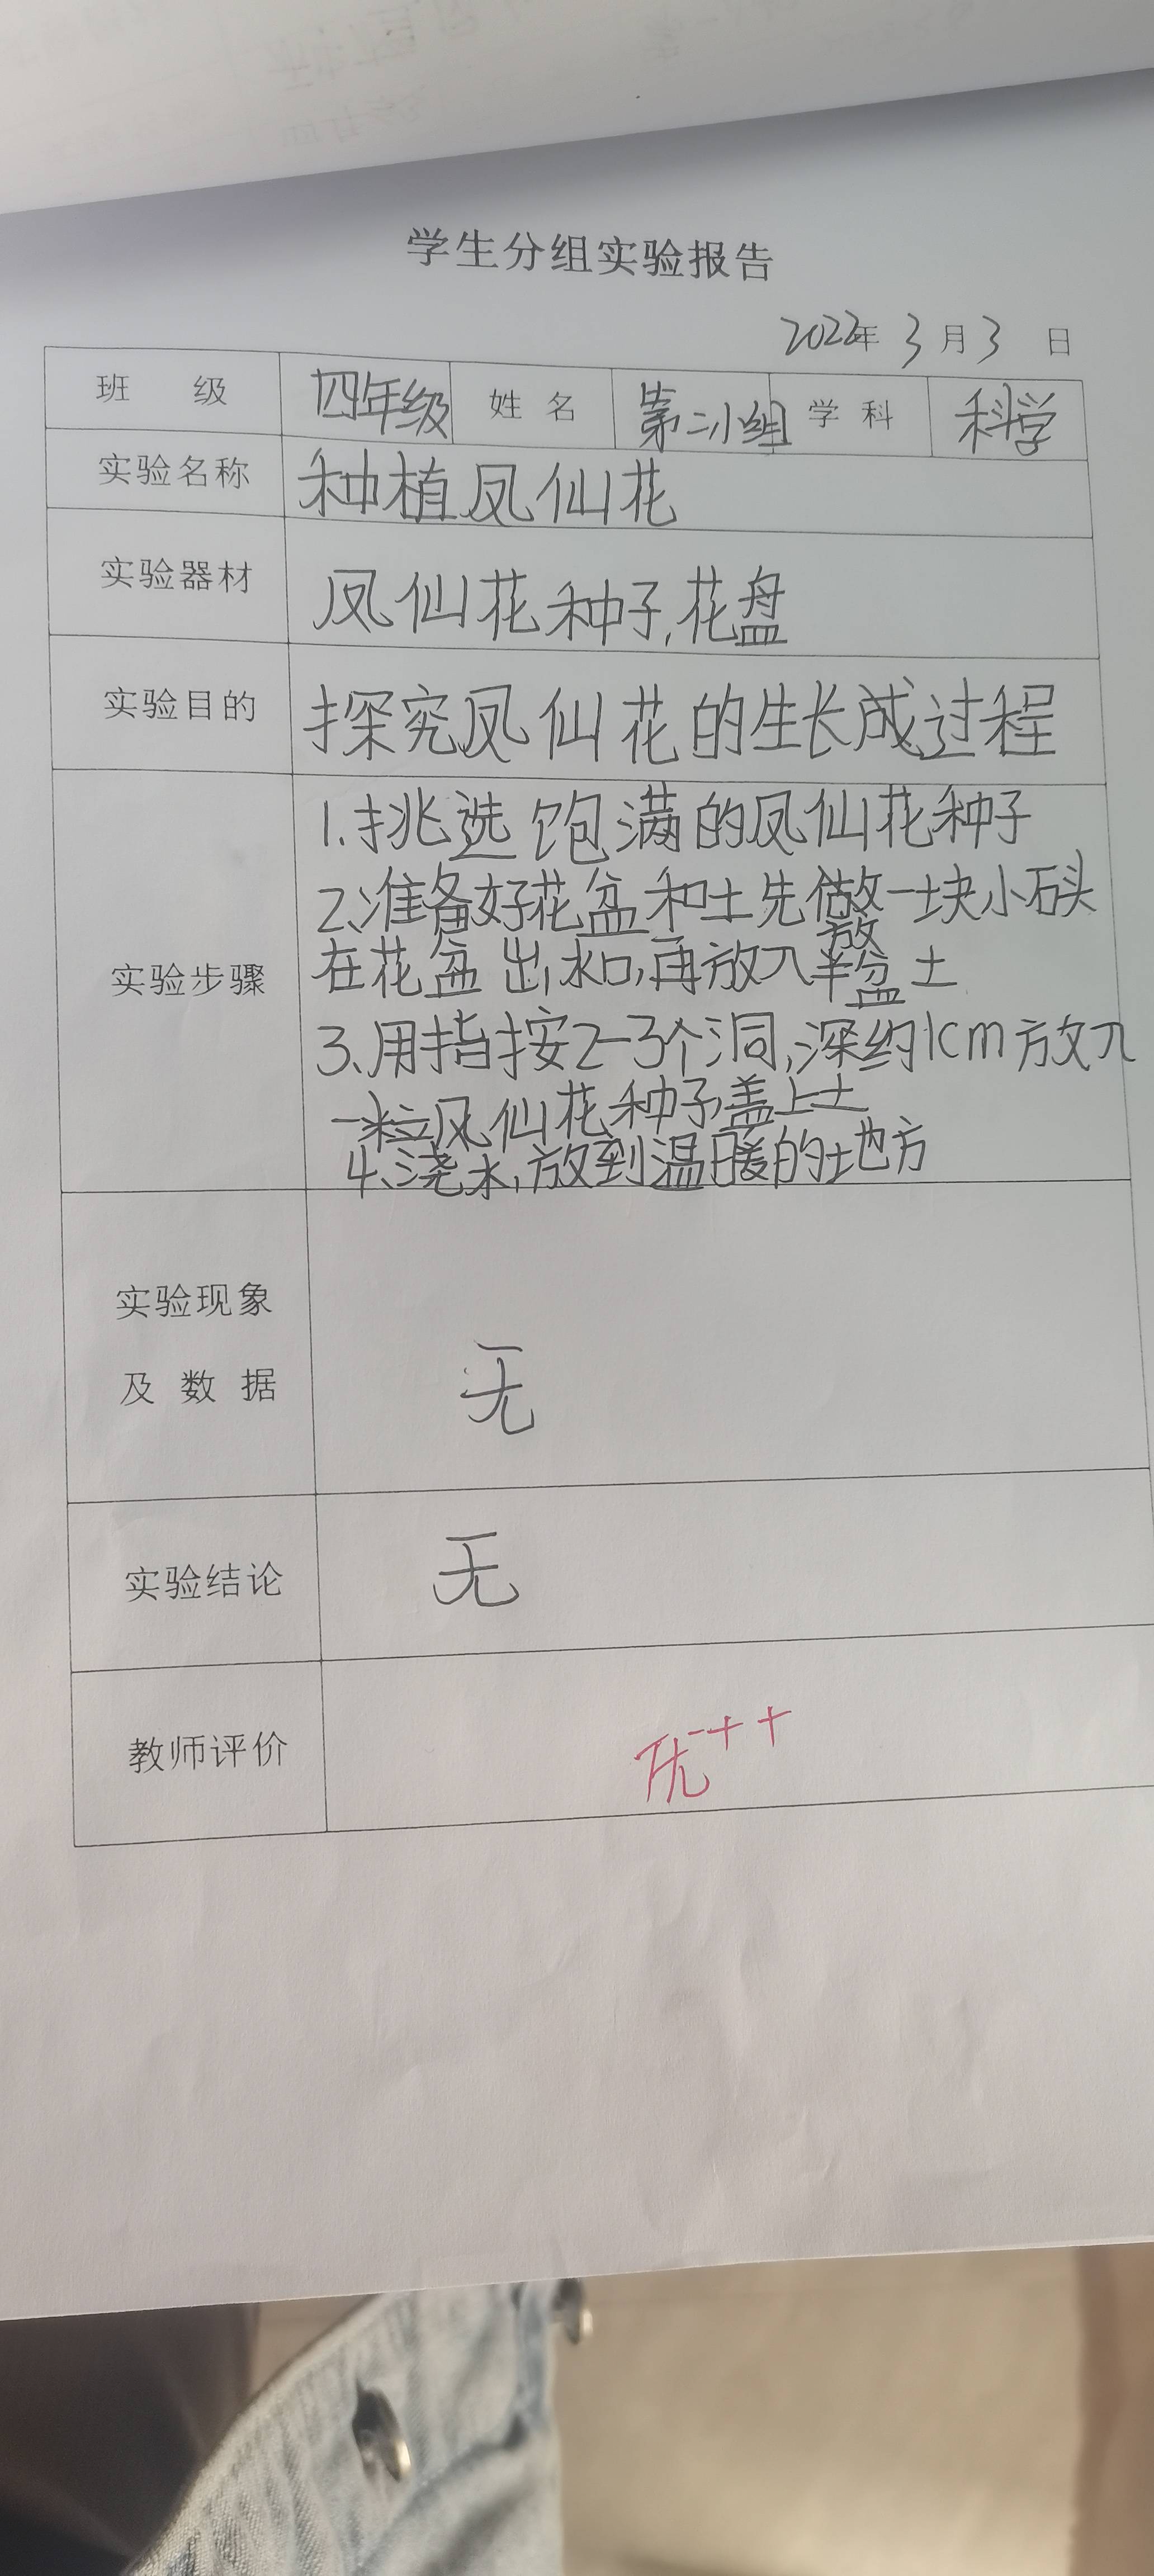 学生分组实验报告
2022年 3月3 日
班 级 四年级 姓名 第二小组 学科 科学
实验名称 种植凤仙花
实验器材 凤仙花种子,花盘
实验目的 探究凤仙花的生长成过程
实验步骤
1.挑选饱满的凤仙花种子
2、准备好花盆和土先做一块小石头
放
在花盆出水口,再放入半盆土
3.用指按2-3个洞,深约1cm放入
一粒凤仙花种子,盖上土
4、浇水,放到温暖的地方
实验现象
及数据
无
实验结论 无
教师评价 优++